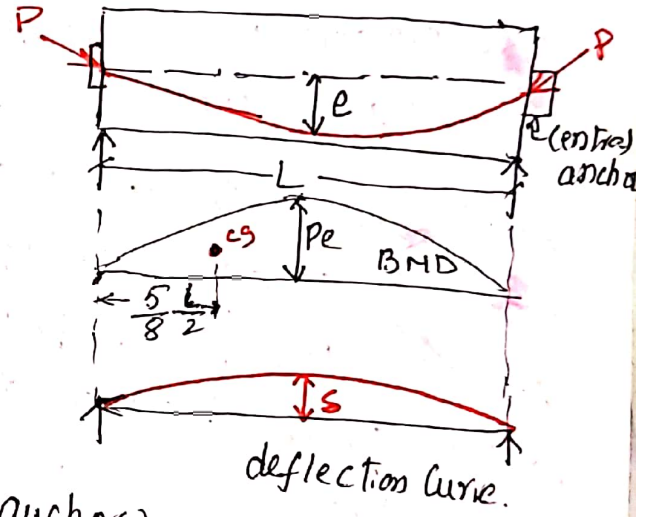 P
P
e
e (central
ancho
L
cg
Pe
BMD
5/8 L/2
δ
deflection Curve.
anchor)